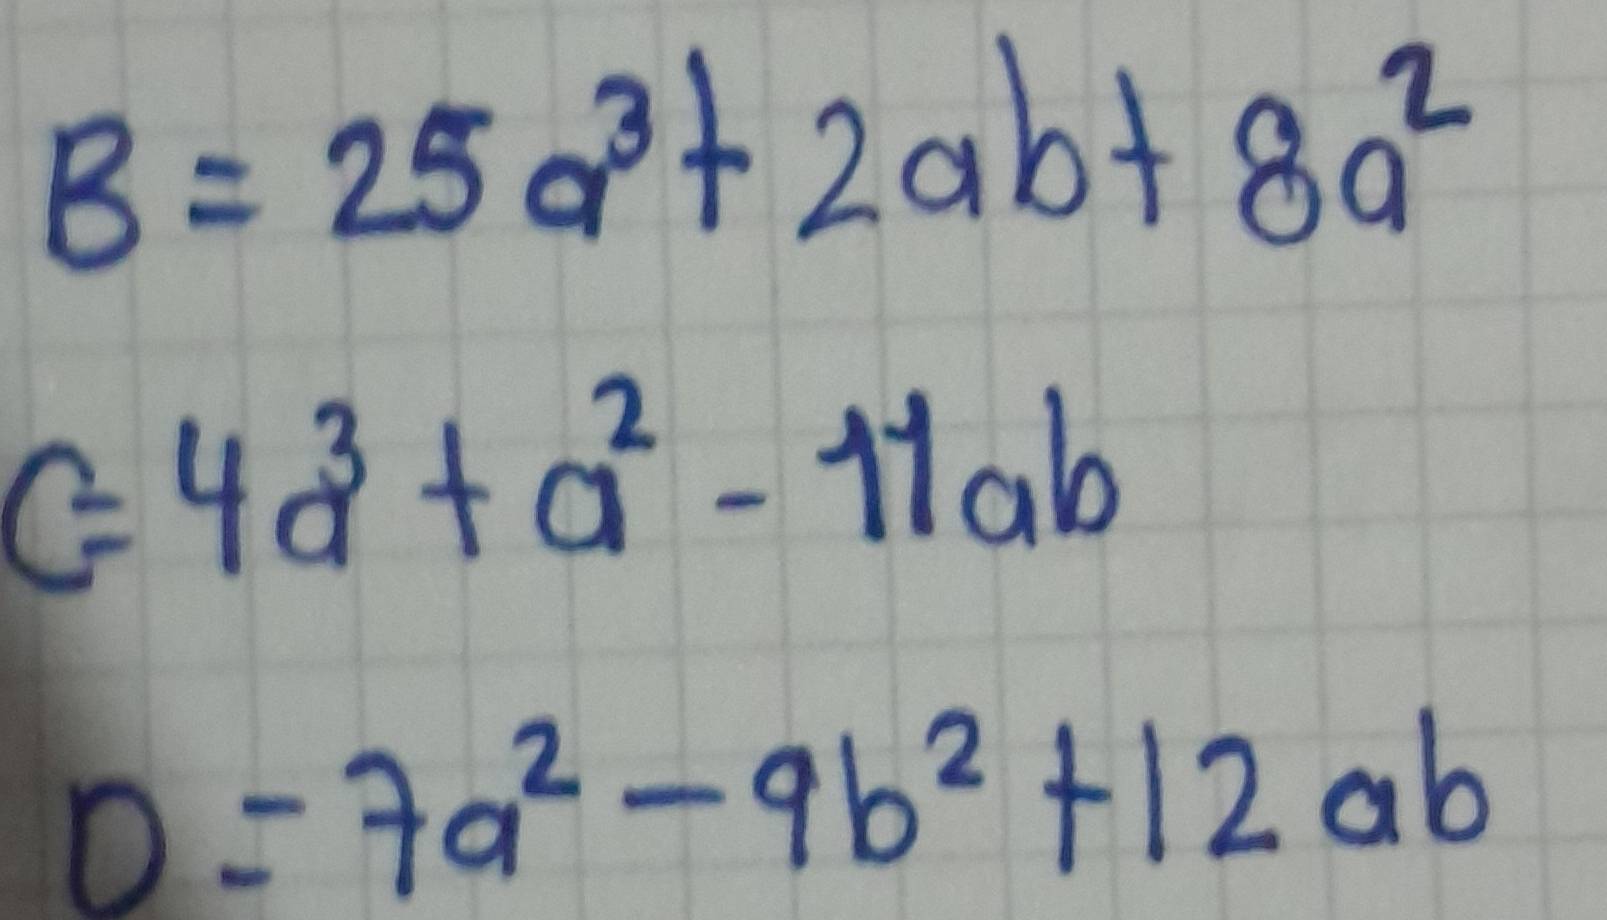 B = 25a³ + 2ab + 8a²
C = 4a³ + a² - 11ab
D = 7a² - 9b² + 12ab